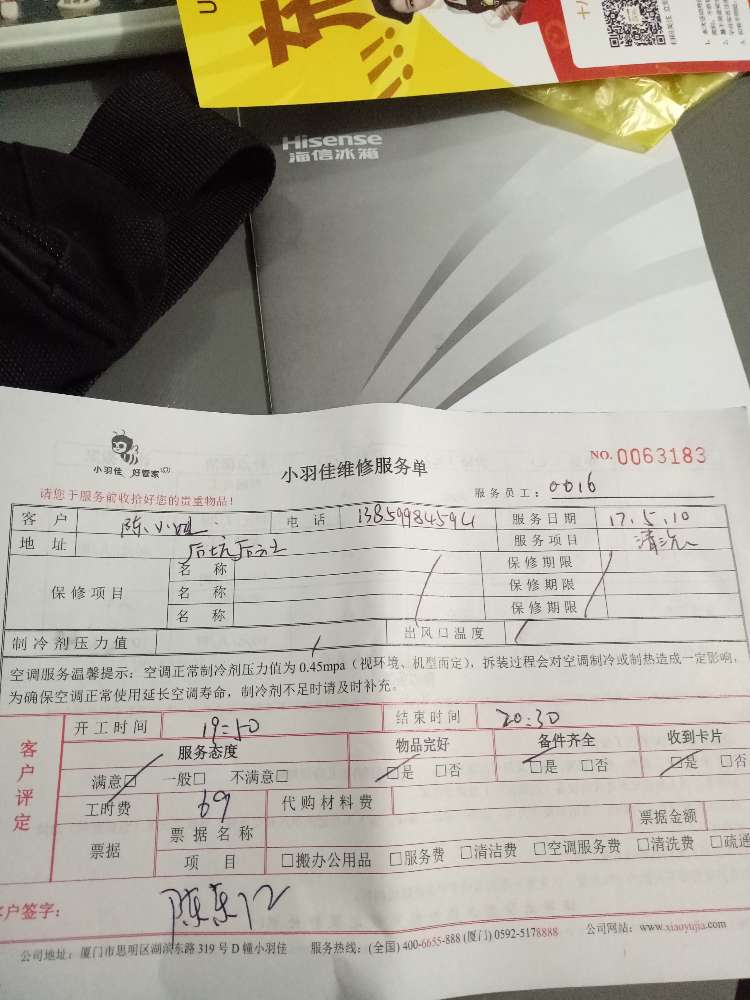 Hisense
海信冰箱
小羽佳 好管家
小羽佳维修服务单
NO. 0063183
请您于服务前收拾好您的贵重物品!
服务员工: 0016
客户 陈小姐 电话 13859984594 服务日期 17.5.10
地址 后坑后社 服务项目 清洗
保修项目 名称 保修期限
名称 保修期限
名称 保修期限
制冷剂压力值 出风口温度
空调服务温馨提示: 空调正常制冷剂压力值为0.45mpa(视环境、机型而定), 拆装过程会对空调制冷或制热造成一定影响,
为确保空调正常使用延长空调寿命, 制冷剂不足时请及时补充。
客户评定
开工时间 19:50 结束时间 20:30
服务态度 物品完好 备件齐全 收到卡片
满意□ 一般□ 不满意□ □是 □否 □是 □否 □是 □否
工时费 69 代购材料费
票据 票据名称 票据金额
项目 □搬办公用品 □服务费 □清洁费 □空调服务费 □清洗费 □疏通
客户签字:
公司地址: 厦门市思明区湖滨东路319号D幢小羽佳 服务热线: (全国) 400-6655-888 (厦门) 0592-5178888 公司网站: www.xiaoyujia.com